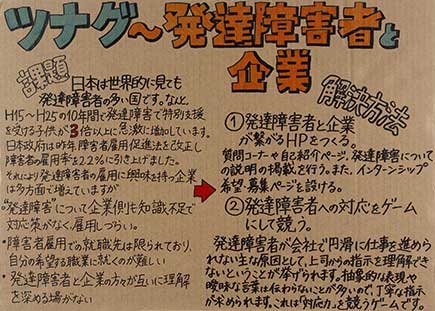 ツナグ～発達障害者と
企業
課題
日本は世界的に見ても
発達障害者の多い国です。なんと
H15～H25の10年間で発達障害で特別支援
を受ける子供が3倍以上に急激に増加しています。
日本政府は昨年、障害者雇用促進法を改正し
障害者の雇用率を2.2%に引き上げました。
それにより発達障害者の雇用に興味を持つ企業
は多方面で増えていますが
"発達障害"について企業側も知識不足で
対応策がなく雇用しづらい。
・障害者雇用での就職先は限られており、
自分の希望する職業に就くのが難しい
・発達障害者と企業の方々が互いに理解
を深める場がない
解決方法
①発達障害者と企業
が繋がるHPをつくる。
質問コーナーや自己紹介ページ。発達障害について
の説明の掲載を行う。また、インターンシップ
希望・募集ページを設ける。
②発達障害者への対応をゲーム
にして競う。
発達障害者が会社で円滑に仕事を進めら
れない主な原因として、上司からの指示を理解でき
ないということが挙げられます。抽象的な表現や
曖昧な言葉は伝わらないことが多いので、丁寧な指示
が求められます。これは「対応力」を競うゲームです。